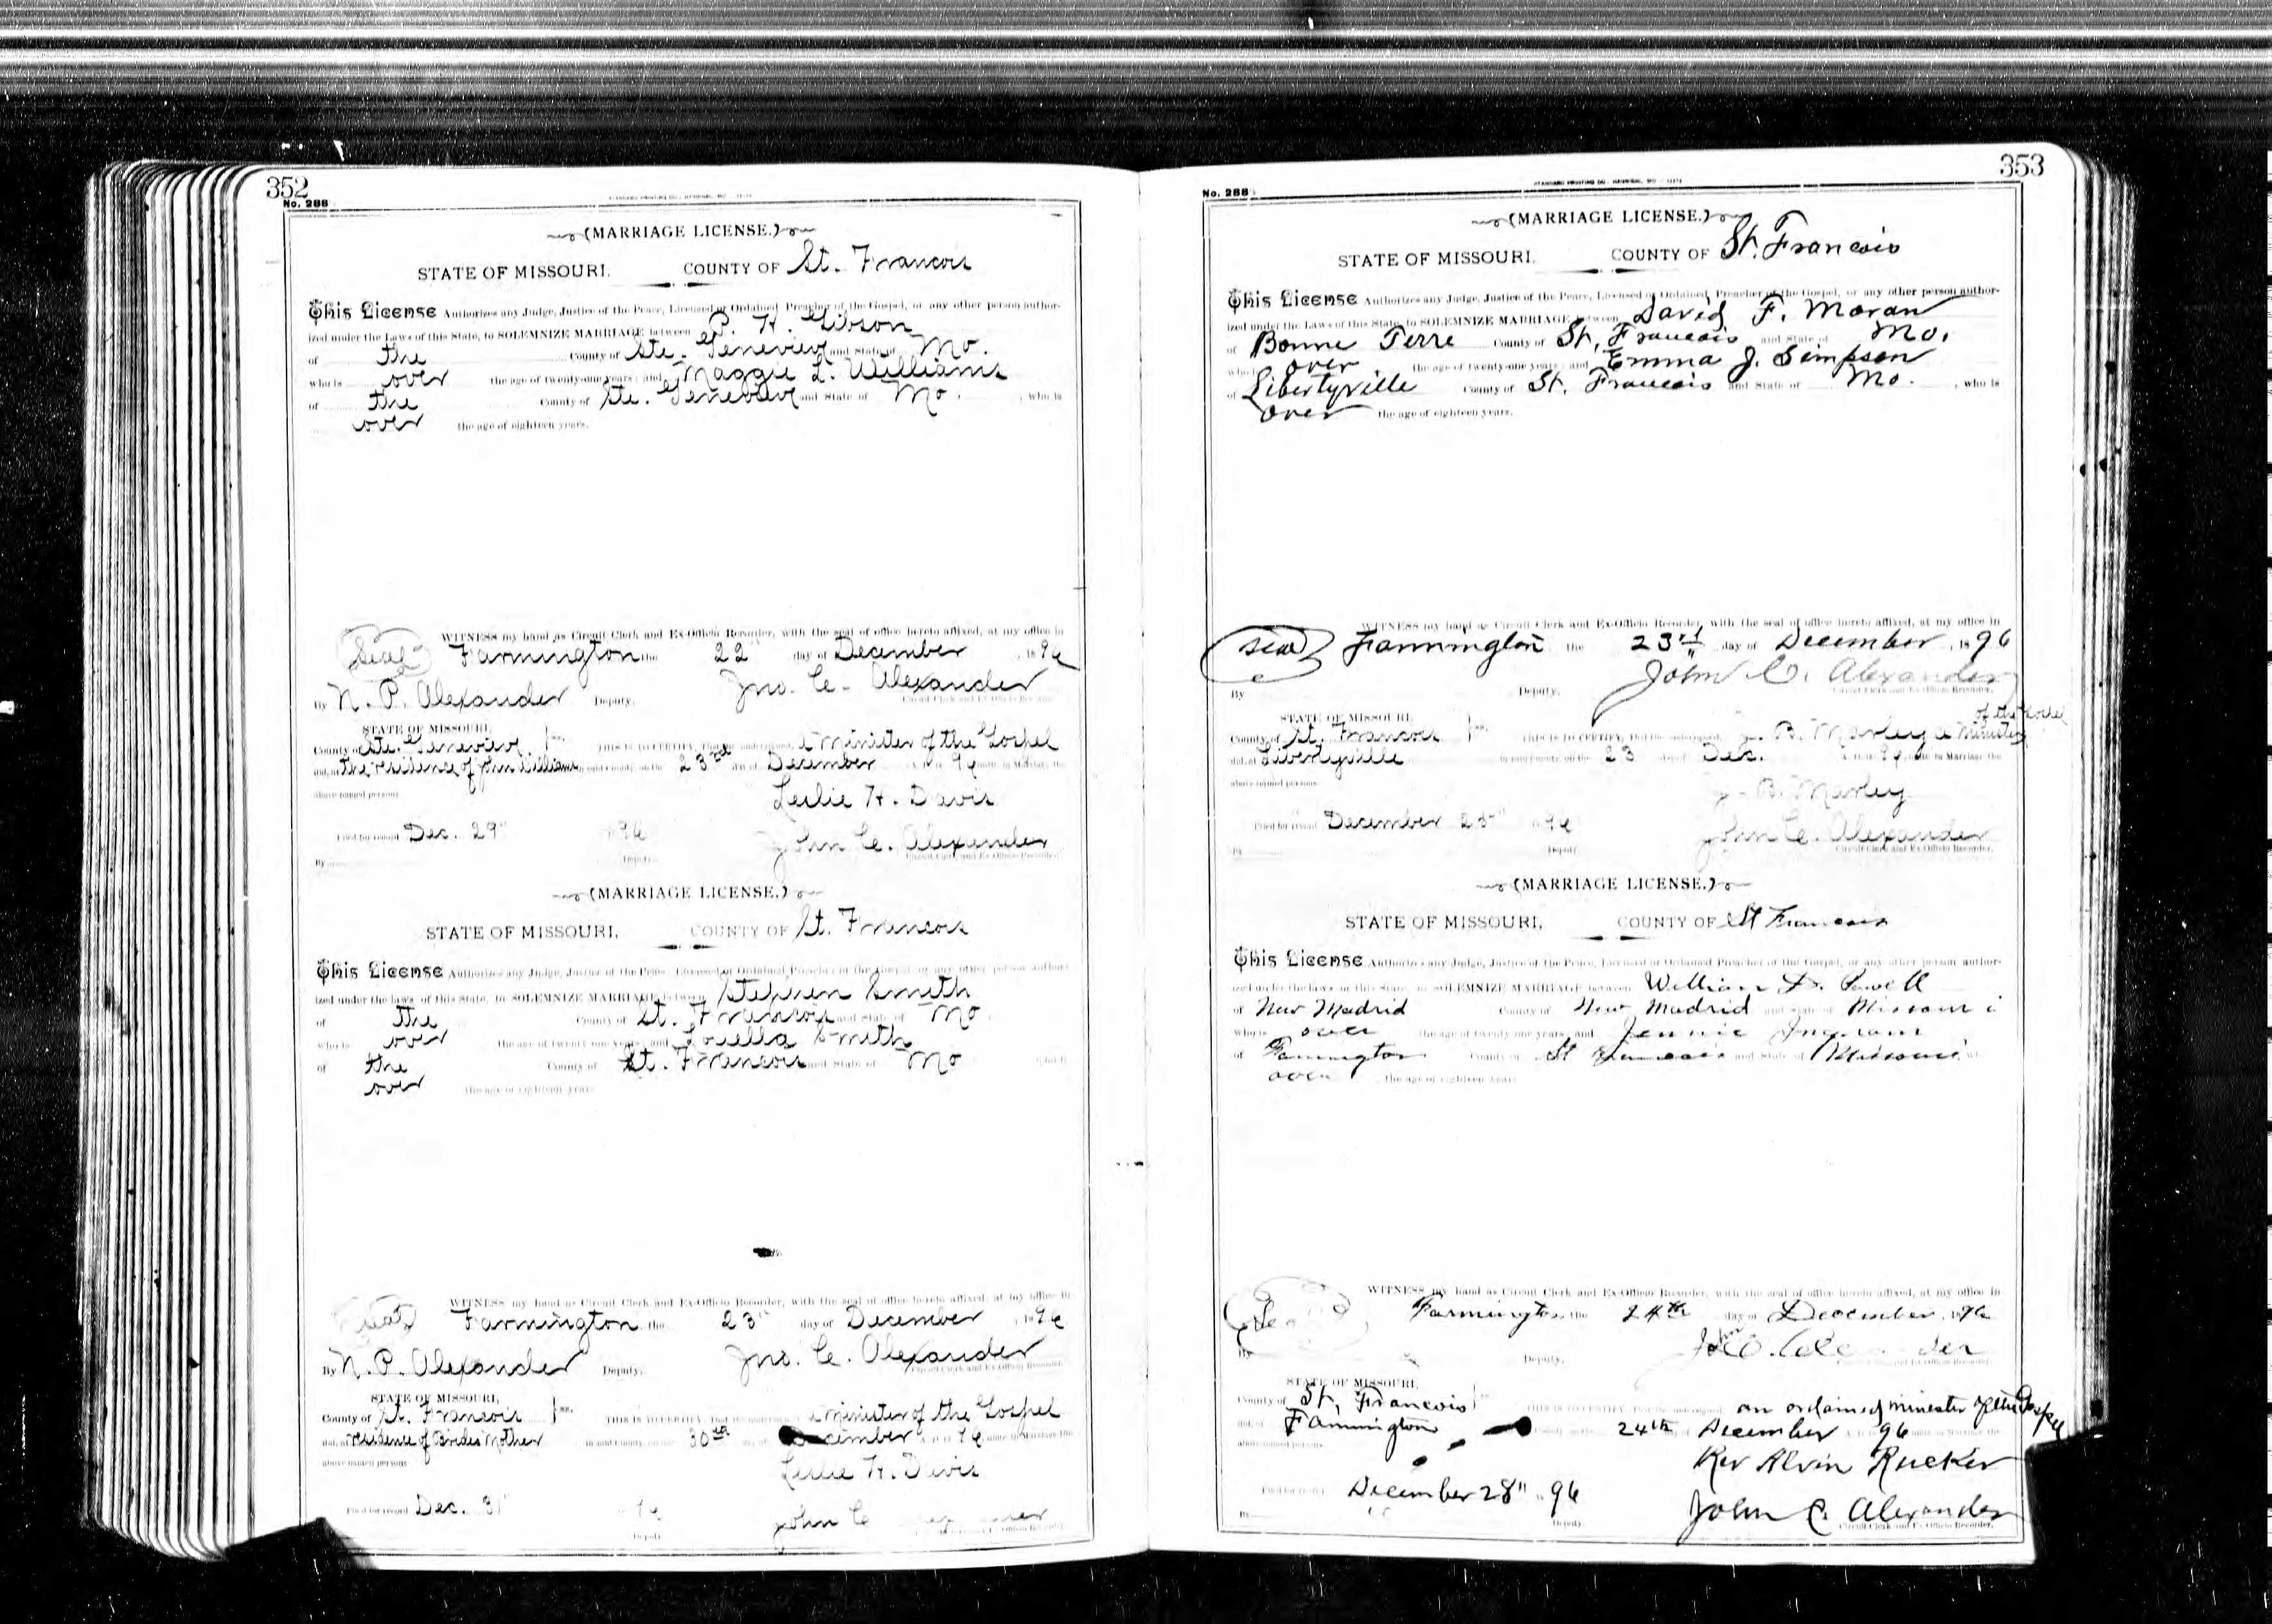 352
No. 288
(MARRIAGE LICENSE.)
STATE OF MISSOURI, COUNTY OF St. Francois
This License Authorizes any Judge, Justice of the Peace, Licensed or Ordained Preacher of the Gospel, or any other person author-
ized under the Laws of this State, to SOLEMNIZE MARRIAGE between P. H. Gibson
of the County of Ste. Genevieve and State of Mo.
who is over the age of twenty-one years; and Maggie L. Williams
of the County of Ste. Genevieve and State of Mo. , who is
over the age of eighteen years.
WITNESS my hand as Circuit Clerk and Ex-Officio Recorder, with the seal of office hereto affixed, at my office in
Seal Farmington the 22" day of December , 1896
By N. P. Alexander Deputy. Jno. C. Alexander
Circuit Clerk and Ex-Officio Recorder.
STATE OF MISSOURI,
County of Ste. Genevieve ss. THIS IS TO CERTIFY, That the undersigned a minister of the Gospel
did, at the residence of John Williams in said county, on the 23rd day of December A. D. 1896 unite in Marriage the
above named persons
Leslie H. Davis
Filed for record Dec. 29" 1896 John C. Alexander
By Deputy. Circuit Clerk and Ex-Officio Recorder.
(MARRIAGE LICENSE.)
STATE OF MISSOURI, COUNTY OF St. Francois
This License Authorizes any Judge, Justice of the Peace, Licensed or Ordained Preacher of the Gospel, or any other person author-
ized under the laws of this State, to SOLEMNIZE MARRIAGE between Stephen Smith
of the County of St. Francois and State of Mo
who is over the age of twenty-one years; and Louella Smith
of the County of St. Francois and State of Mo who is
over the age of eighteen years
WITNESS my hand as Circuit Clerk and Ex-Officio Recorder, with the seal of office hereto affixed, at my office in
Seal Farmington the 23" day of December , 1896
By N. P. Alexander Deputy. Jno. C. Alexander
Circuit Clerk and Ex-Officio Recorder.
STATE OF MISSOURI,
County of St. Francois ss. THIS IS TO CERTIFY, That the undersigned a minister of the Gospel
did, at residence of Brides Mother in said County, on the 30th day of December A. D. 1896 unite in Marriage the
above named persons
Leslie H. Davis
Filed for record Dec. 31" 96 John C
Deputy Circuit Clerk and Ex-Officio Recorder.
353
No. 288
STANDARD PRINTING CO., HANNIBAL, MO.
(MARRIAGE LICENSE.)
STATE OF MISSOURI, COUNTY OF St. Francois
This License Authorizes any Judge, Justice of the Peace, Licensed or Ordained Preacher of the Gospel, or any other person author-
ized under the Laws of this State, to SOLEMNIZE MARRIAGE between David F. Moran
of Bonne Terre County of St. Francois and State of Mo.
who is over the age of twenty-one years; and Emma J. Simpson
of Libertyville County of St. Francois and State of Mo. , who is
over the age of eighteen years.
WITNESS my hand as Circuit Clerk and Ex-Officio Recorder, with the seal of office hereto affixed, at my office in
Seal Farmington the 23rd day of December , 1896
By Deputy. John C. Alexander
Circuit Clerk and Ex-Officio Recorder.
STATE OF MISSOURI, of the Gospel
County of St. Francois ss. THIS IS TO CERTIFY, That the undersigned B. Marley a Minister
did, at Libertyville in said county, on the 23 day of Dec. A. D. 1896 unite in Marriage the
above named persons
B. Marley
Filed for record December 25" 1896 John C. Alexander
By Deputy. Circuit Clerk and Ex-Officio Recorder.
(MARRIAGE LICENSE.)
STATE OF MISSOURI, COUNTY OF St Francois
This License Authorizes any Judge, Justice of the Peace, Licensed or Ordained Preacher of the Gospel, or any other person author-
ized under the laws of this State, to SOLEMNIZE MARRIAGE between William D. Powell
of New Madrid County of New Madrid and State of Missouri
who is over the age of twenty-one years; and Jennie Ingram
of Farmington County of St Francois and State of Missouri
over the age of eighteen years
WITNESS my hand as Circuit Clerk and Ex-Officio Recorder, with the seal of office hereto affixed, at my office in
Farmington the 24th day of December , 1896
By Deputy.
Circuit Clerk and Ex-Officio Recorder.
STATE OF MISSOURI,
County of St. Francois ss. THIS IS TO CERTIFY, That the undersigned an ordained minister of the Gospel
did, at Farmington in said County, on the 24th December 96 unite in Marriage the
above named persons
Rev Alvin Rucker
Filed for record December 28" 1896 John C. Alexander
By Deputy. Circuit Clerk and Ex-Officio Recorder.